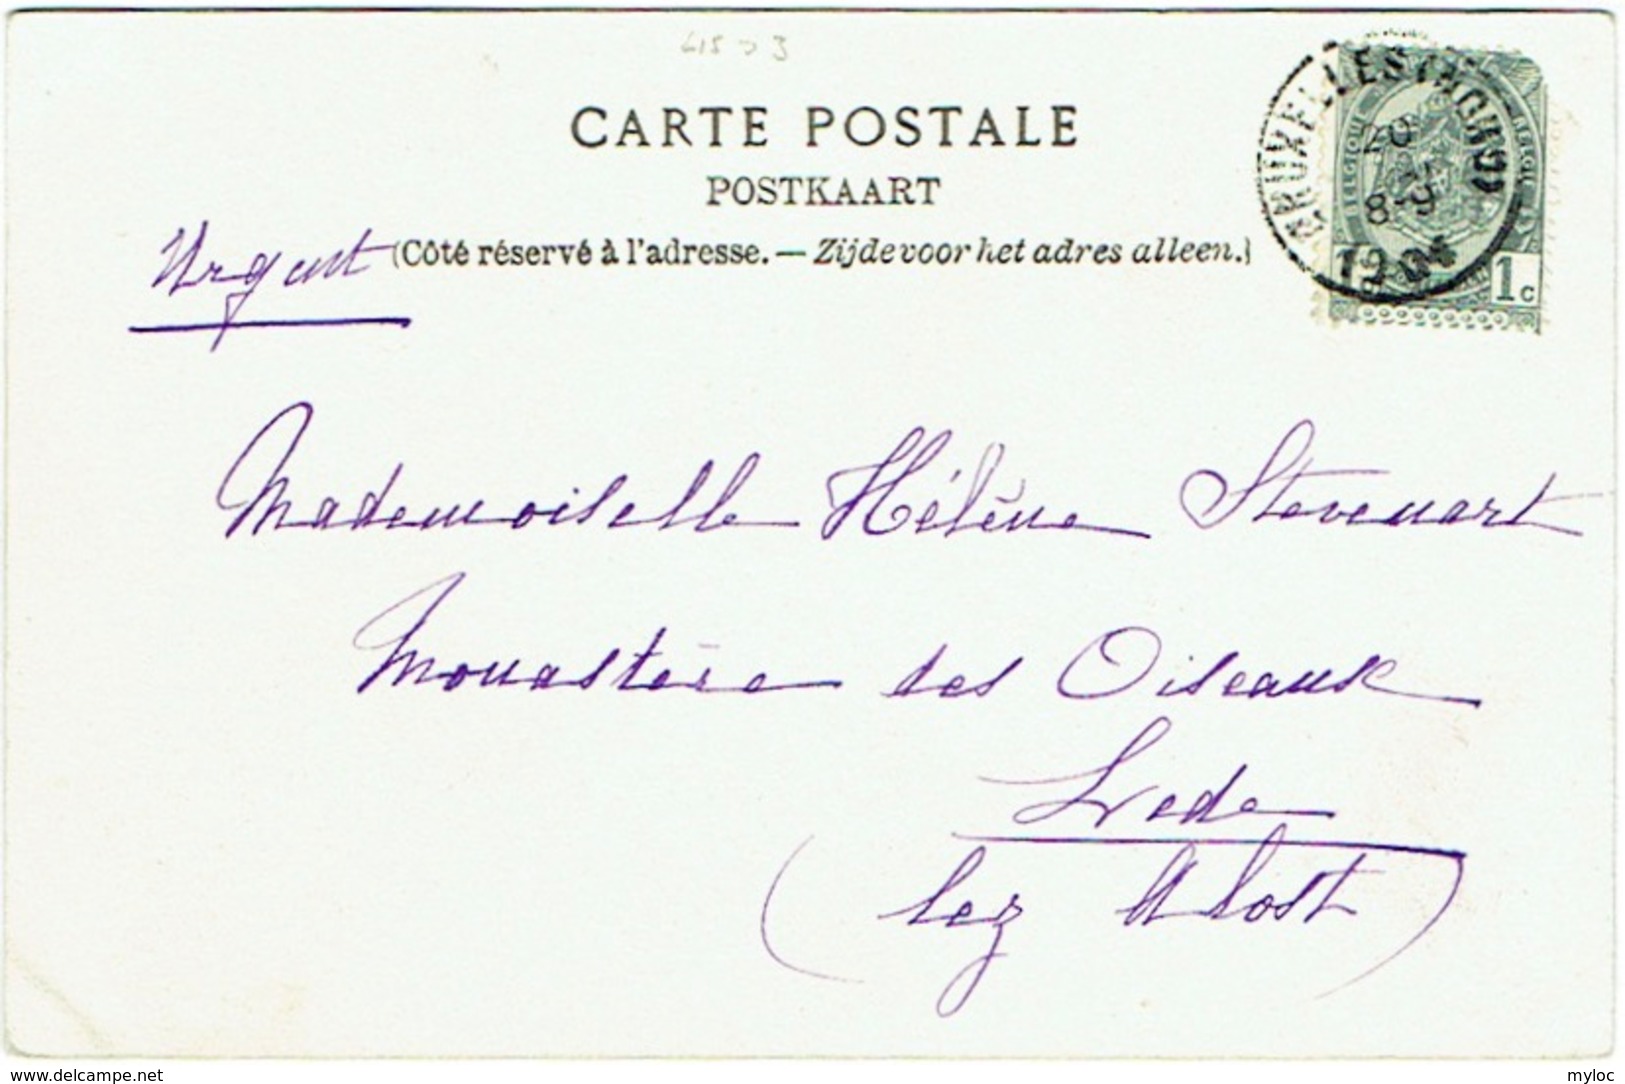 CARTE POSTALE
POSTKAART
Urgent
(Côté réservé à l'adresse. — Zijde voor het adres alleen.)
BRUXELLES
20
8-9
1904
BELGIQUE
BELGIE
1c
Mademoiselle Hélène Stevenart
Monastère des Oiseaux
Lede
(lez Alost)
delcampe.net
myloc